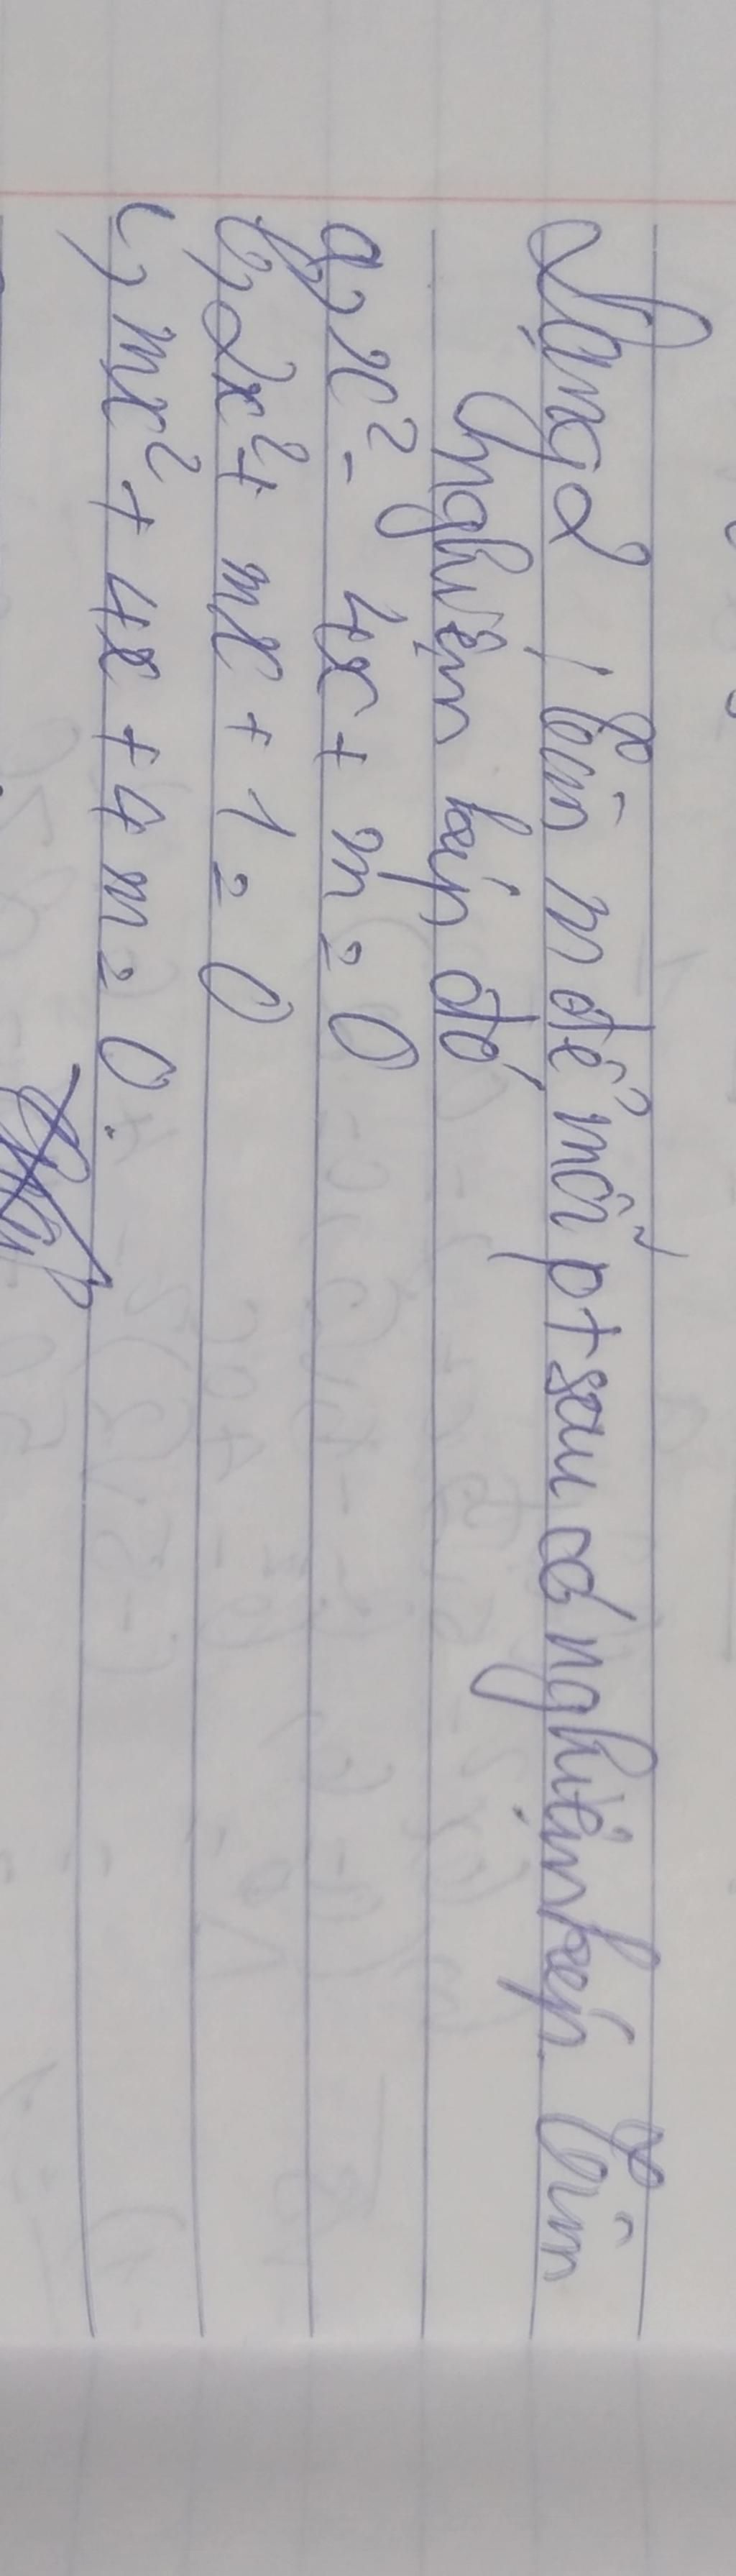 Dạng 2 : Tìm m để mỗi pt sau có nghiệm kép. Tìm
nghiệm kép đó
a, x² - 4x + m = 0
b, 2x² + mx + 1 = 0
c, mx² + 4x + 4m = 0.